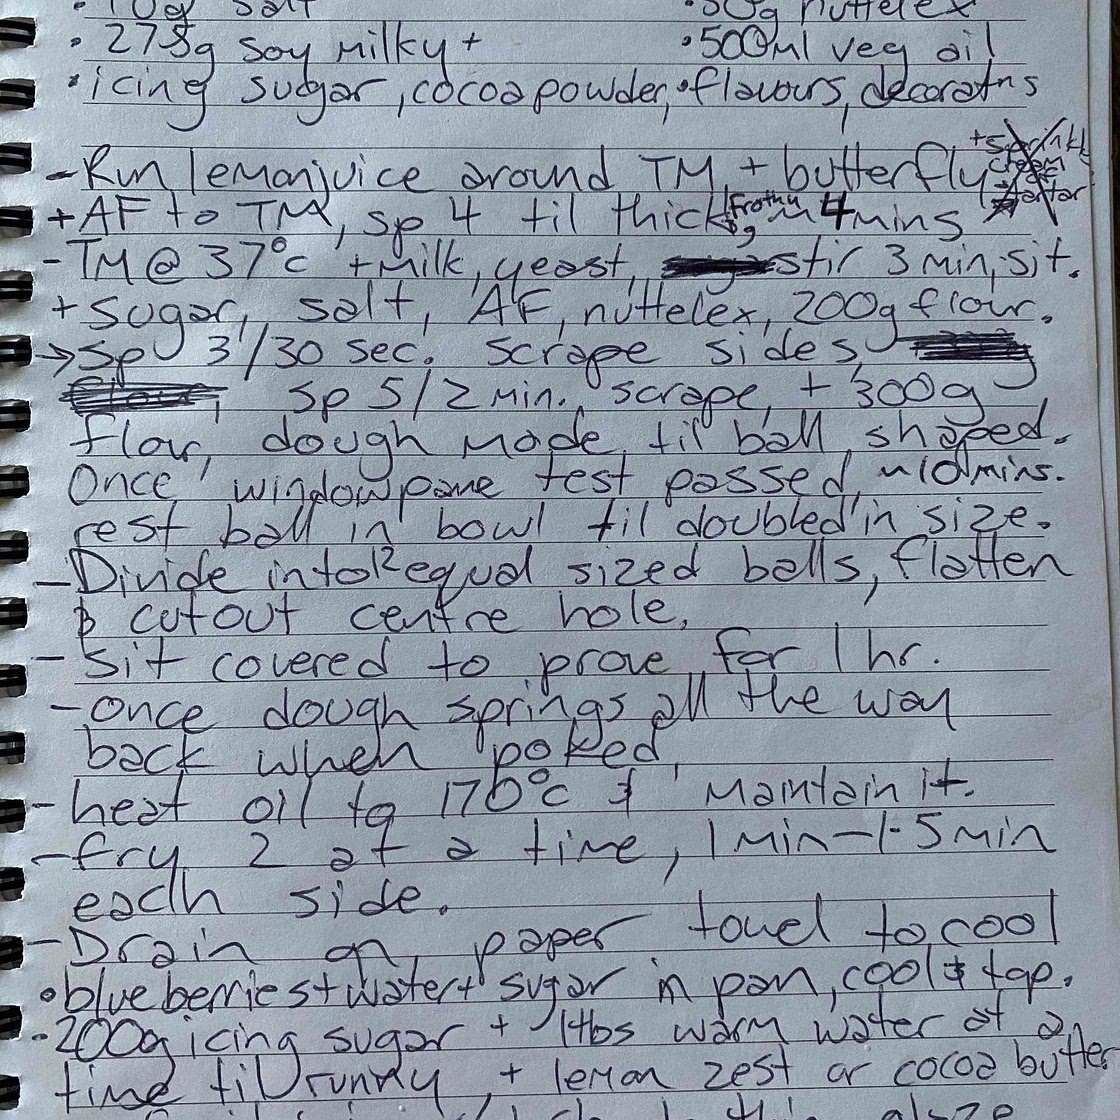 • 10g salt •50g nuttelex
• 275g soy milky+ •500ml veg oil
• icing sugar, cocoa powder, • flavours, decoratns
- Run lemon juice around TM, + butterfly
+ AF to TM, sp 4 til thick, frothy ~4mins
- TM @ 37°c +milk, yeast, stir 3 min, sit.
+ sugar, salt, AF, nuttelex, 200g flour.
→ sp 3/30 sec. scrape sides,
sp 5/2 min. scrape, + 300g
flour, dough mode til ball shaped.
Once windowpane test passed ~10mins.
rest ball in bowl til doubled in size.
- Divide into 12 equal sized balls, flatten
& cut out centre hole.
- sit covered to prove for 1 hr.
- once dough springs all the way
back when poked,
- heat oil to 170°c & maintain it.
- fry 2 at a time, 1 min-1.5 min
each side.
- Drain on paper towel to cool
• blueberries + water + sugar in pan, cool & top.
• 200g icing sugar + 1tbs warm water at a
time til runny + lemon zest or cocoa butter